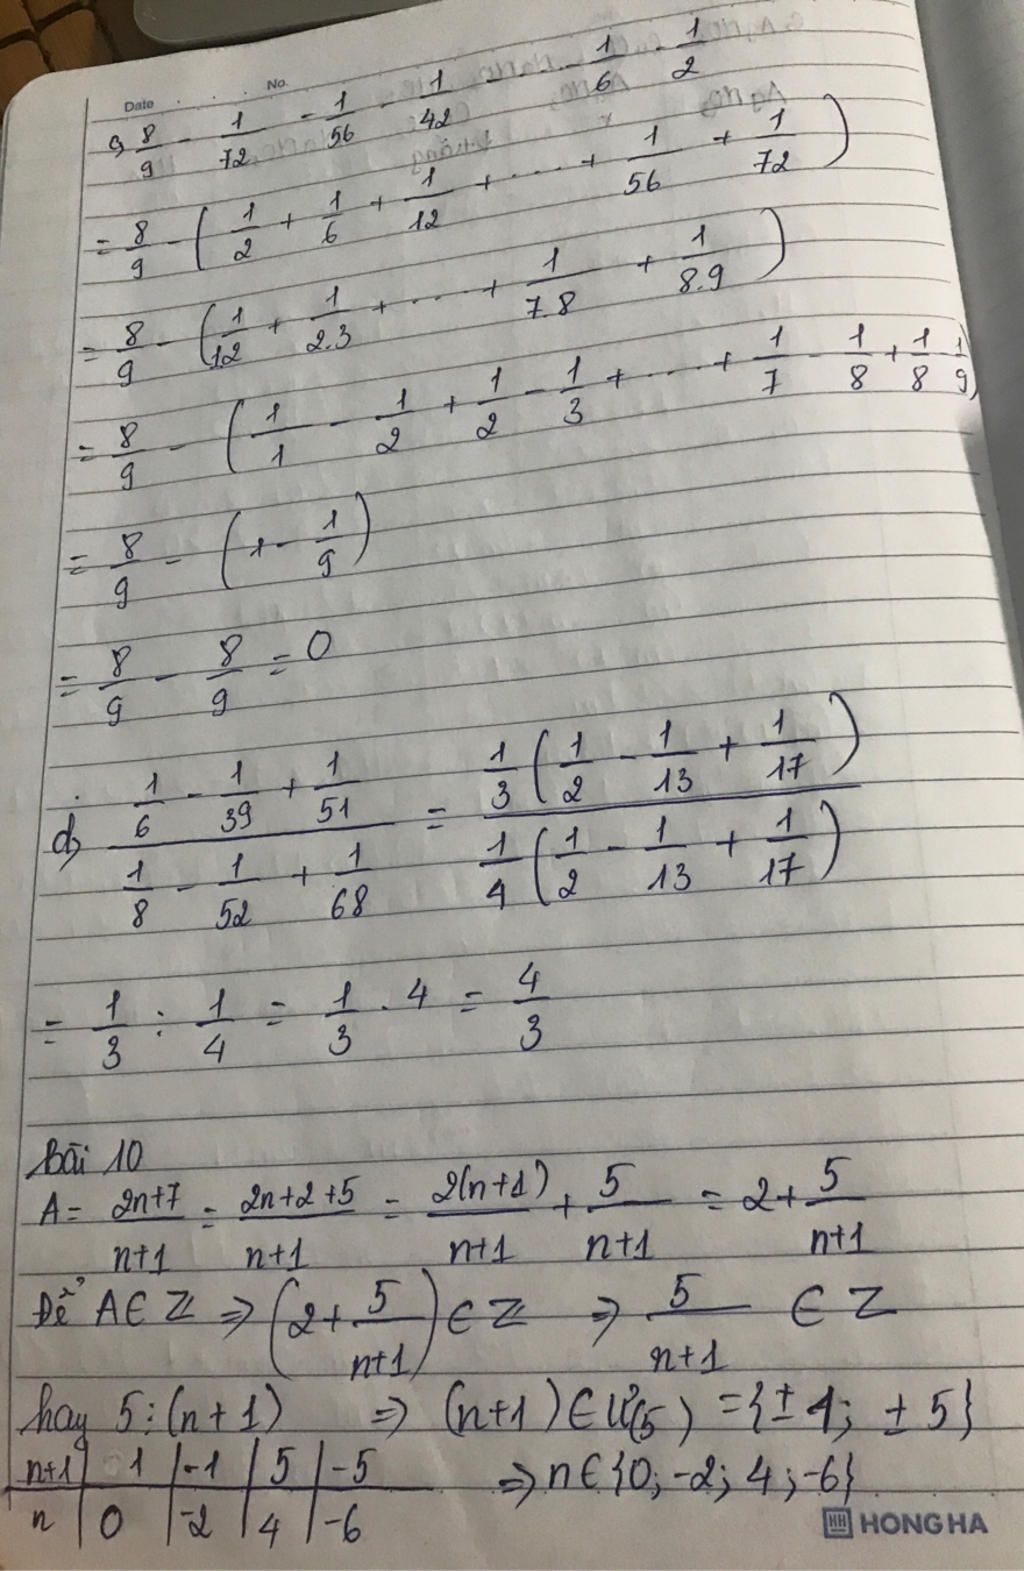 Date No.
c, 8/9 - 1/72 - 1/56 - 1/42 - .... - 1/6 - 1/2
= 8/9 - (1/2 + 1/6 + 1/12 + .... + 1/56 + 1/72)
= 8/9 - (1/12 + 1/2.3 + .... + 1/7.8 + 1/8.9)
= 8/9 - (1/1 - 1/2 + 1/2 - 1/3 + .... + 1/7 - 1/8 + 1/8 1/9)
= 8/9 - (1 - 1/9)
= 8/9 - 8/9 = 0
d, (1/6 - 1/39 + 1/51)/(1/8 - 1/52 + 1/68) = (1/3(1/2 - 1/13 + 1/17))/(1/4(1/2 - 1/13 + 1/17))
= 1/3 : 1/4 = 1/3 . 4 = 4/3
Bài 10
A = (2n+7)/(n+1) = (2n+2+5)/(n+1) = 2(n+1)/(n+1) + 5/(n+1) = 2 + 5/(n+1)
Để A ∈ Z ⇒ (2 + 5/(n+1)) ∈ Z ⇒ 5/(n+1) ∈ Z
hay 5 ⋮ (n+1) ⇒ (n+1) ∈ Ư(5) = {±1; ±5}
n+1 | 1 | -1 | 5 | -5 ⇒ n ∈ {0; -2; 4; -6}
n | 0 | -2 | 4 | -6
HH HONG HA